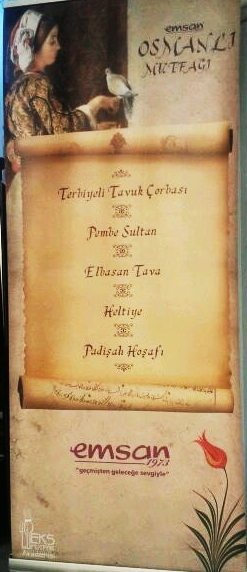 emsan
OSMANLI
MUTFAĞI
Terbiyeli Tavuk Çorbası
Pembe Sultan
Elbasan Tava
Heltiye
Padişah Hoşafı
emsan®
1973
"geçmişten geleceğe sevgiyle"
EKS
MUTFAK
Akademisi